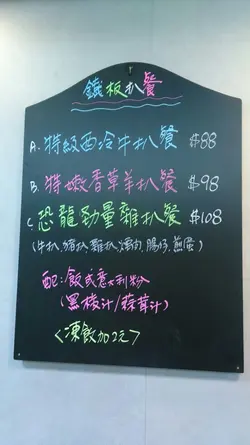 鐵板扒餐
A. 特級西冷牛扒餐 $88
B. 特嫩香草羊扒餐 $98
C. 恐龍勁量雜扒餐 $108
(牛扒, 豬扒, 雞扒, 燒肉, 腸仔, 煎蛋)
配: 飯或意大利粉
(黑椒汁/蒜茸汁)
<凍飲加2元>